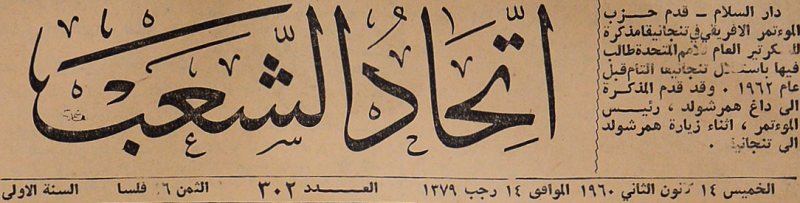 اتحاد الشعب
دار السلام - قدم حزب
الموءتمر الافريقي في تنجانيقا مذكرة
للسكرتير العام للامم المتحدة طالب
فيها باستقلال تنجانيقا التام قبل
عام ١٩٦٢ . وقد قدم المذكرة
الى داغ همرشولد ، رئيس
الموءتمر ، اثناء زيارة همرشولد
الى تنجانيقا .
الخميس ١٤ كانون الثاني ١٩٦٠ الموافق ١٤ رجب ١٣٧٩ العـــدد ٣٠٢ الثمن ١٦ فلسا السنة الاولى